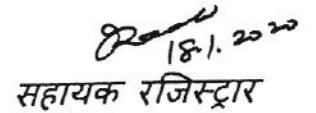 18.1.2020
सहायक रजिस्ट्रार